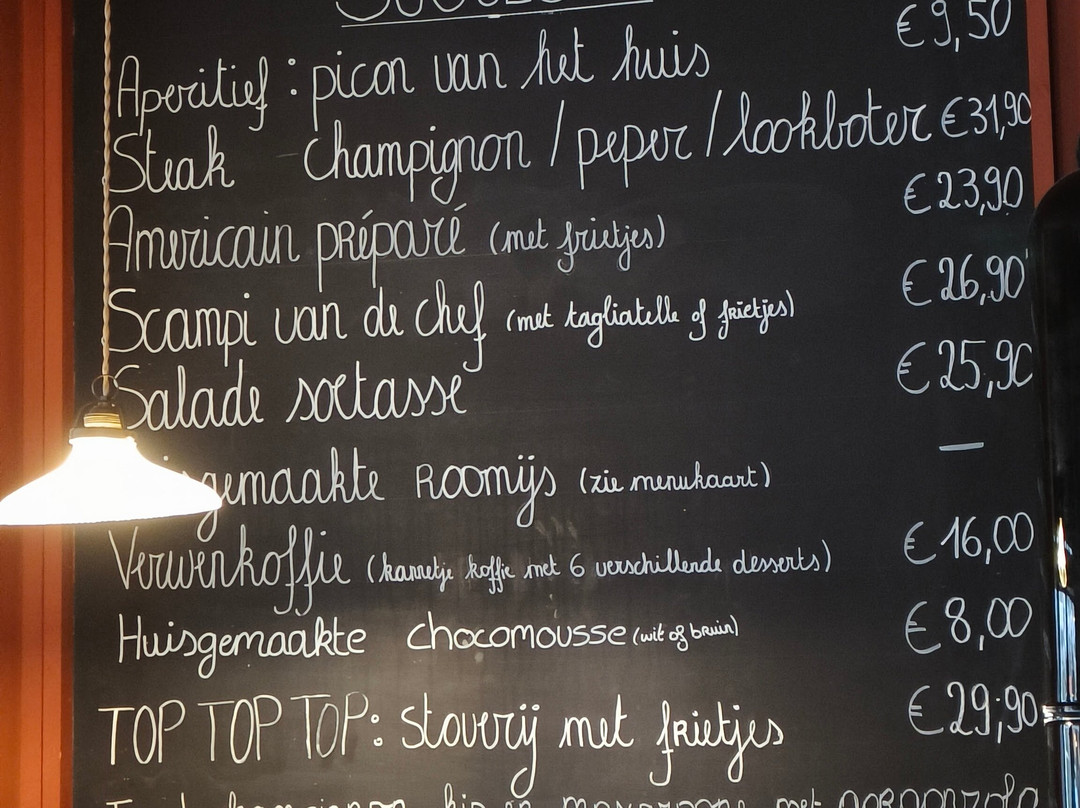 Aperitief : picon van het huis € 9,50
Steak champignon / peper / lookboter € 31,90
Americain préparé (met frietjes) € 23,90
Scampi van de chef (met tagliatelle of frietjes) € 26,90
Salade soetasse € 25,90
gemaakte Roomijs (zie menukaart) —
Verwenkoffie (kannetje koffie met 6 verschillende desserts) € 16,00
Huisgemaakte chocomousse (wit of bruin) € 8,00
TOP TOP TOP: stoverij met frietjes € 29,90